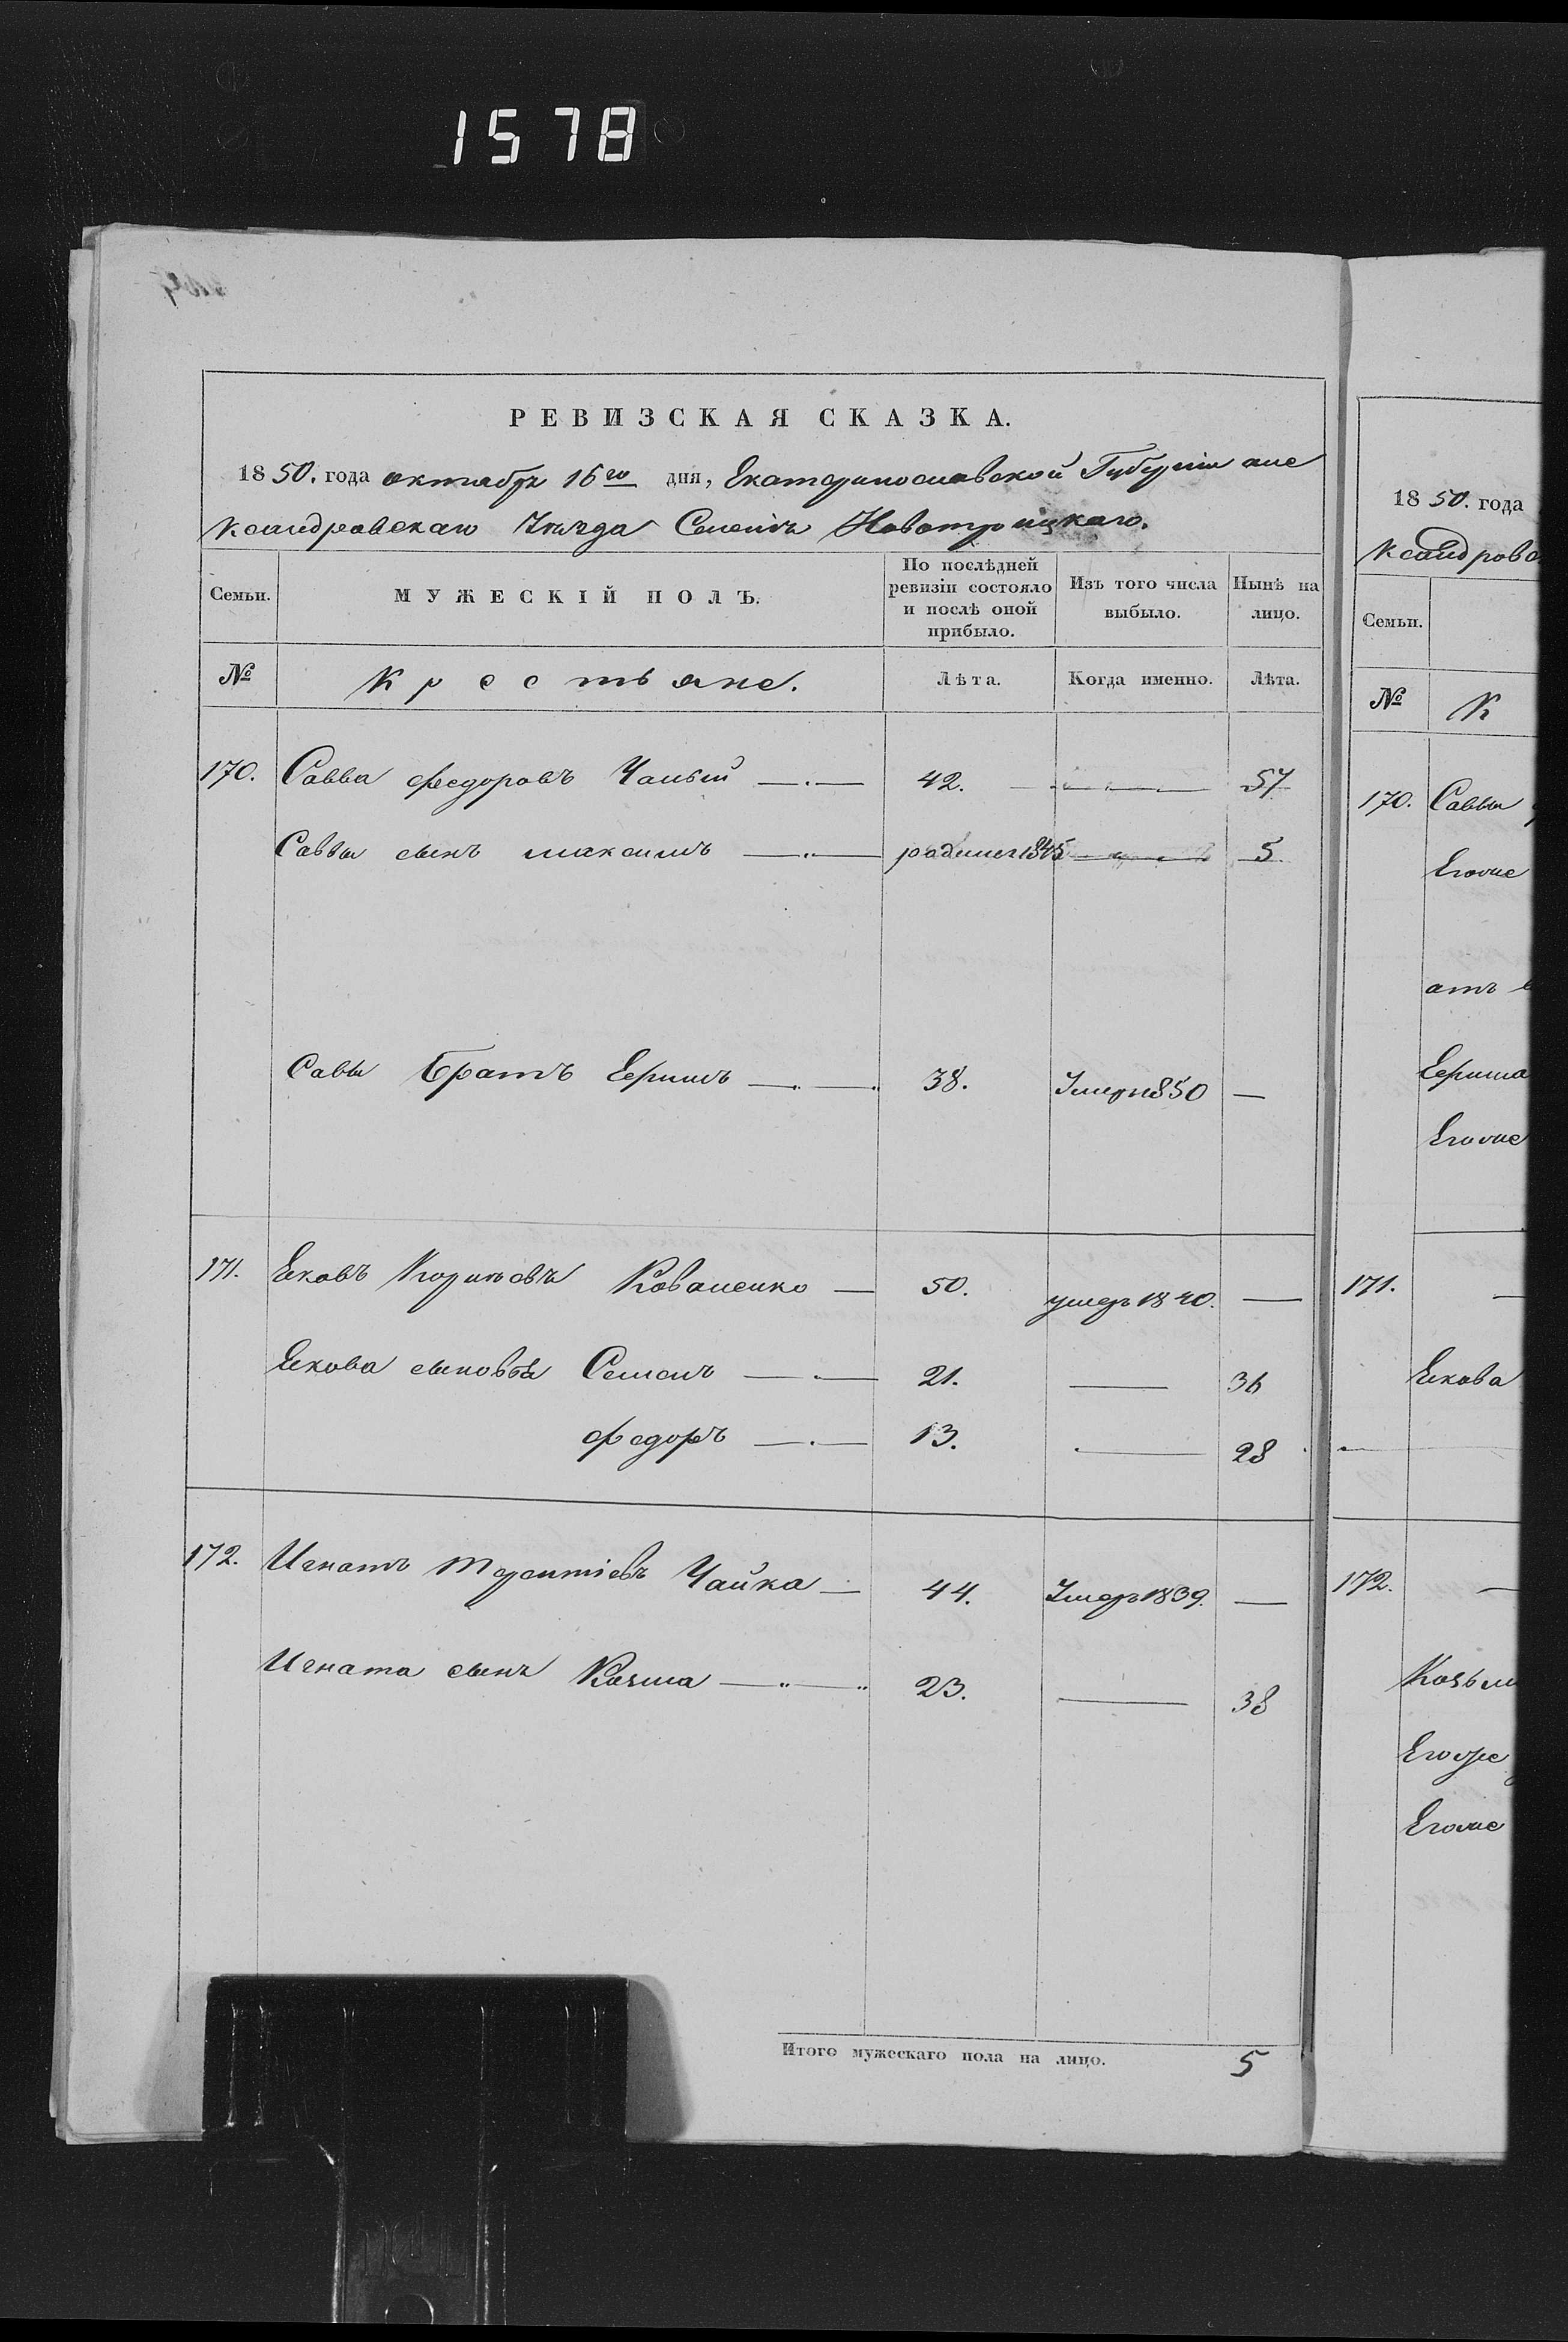 1578
РЕВИЗСКАЯ СКАЗКА.
1850. года октября 16го дня, Екатеринославской Губерніи але
ксандровскаго Уѣзда Селенія Новотроицкаго.
Семьи. МУЖЕСКІЙ ПОЛЪ. По послѣдней ревизіи состояло и послѣ оной прибыло. Изъ того числа выбыло. Нынѣ на лицо.
№ Крестьяне. Лѣта. Когда именно. Лѣта.
170. Савва федоровъ 42. 57
Саввы сынъ максимъ 1845 5.
Савы братъ 38. Умеръ 1850 —
171. Коваленко — 50. умеръ 1840. —
сыновья Семенъ 21. — 36
федоръ 13. — 28
172. Игнатъ Терентіевъ Чайка — 44. Умеръ 1839. —
Игната сынъ Козма 23. — 38
Итого мужескаго пола на лицо. 5
1850. года
ксандрова
Семьи.
№ К
170. Саввы
атъ
171. —
172. —
Козьм